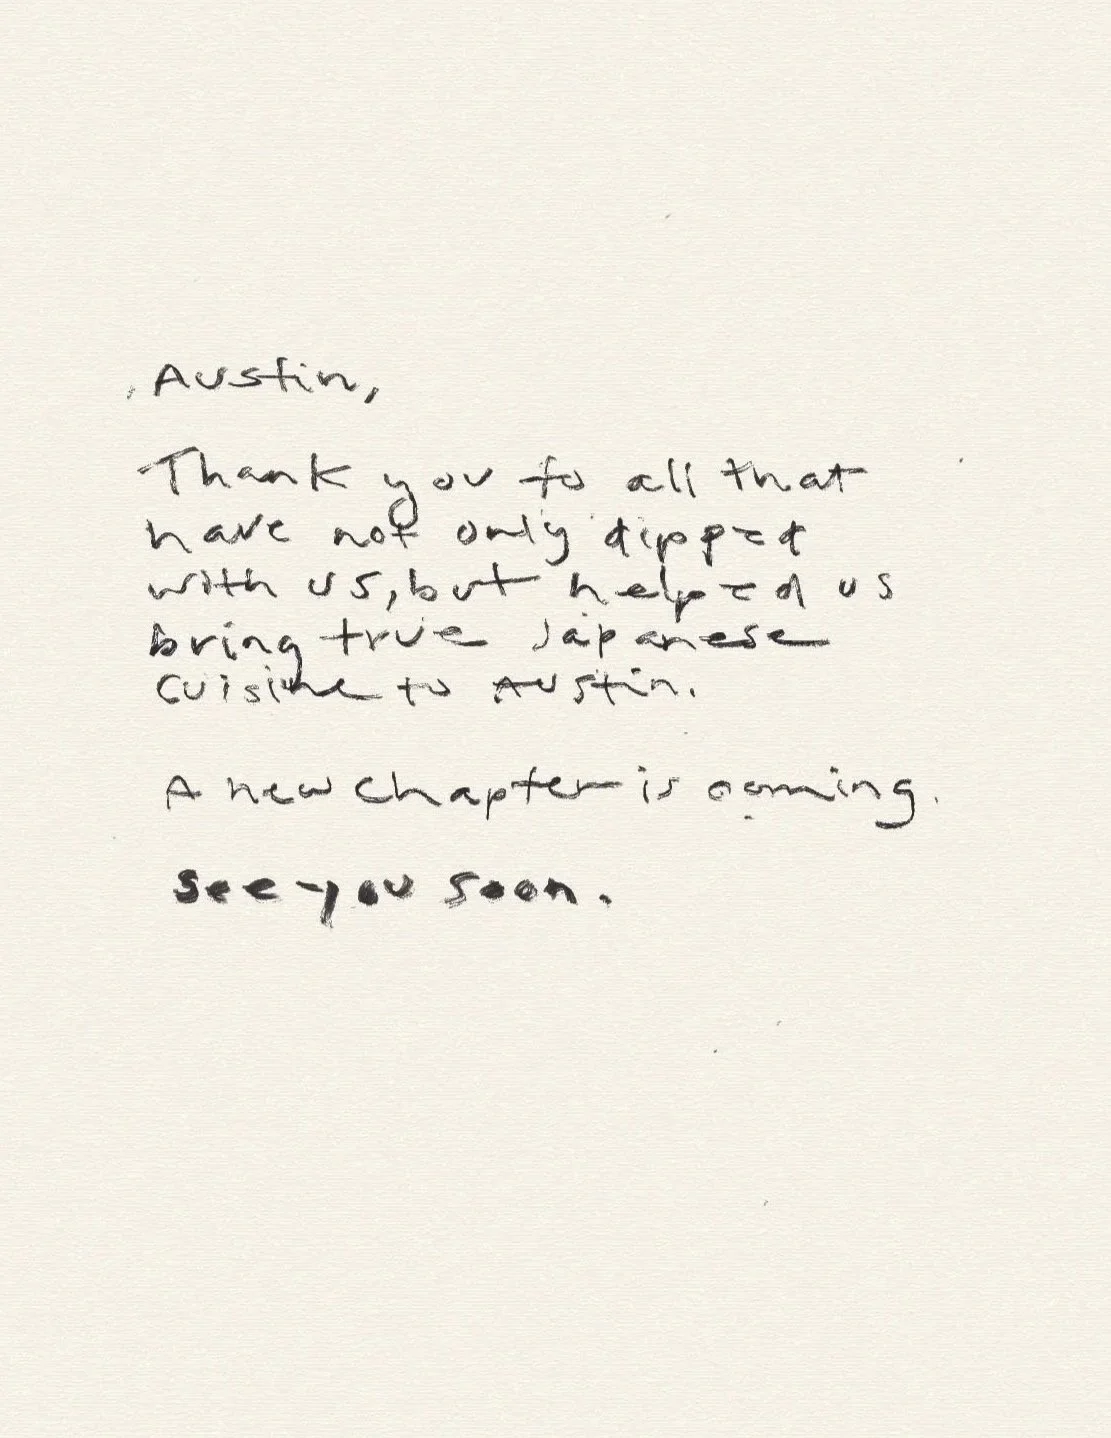 Austin,
Thank you to all that
have not only dipped
with us, but helped us
bring true Japanese
cuisine to Austin.
A new chapter is coming.
see you soon.